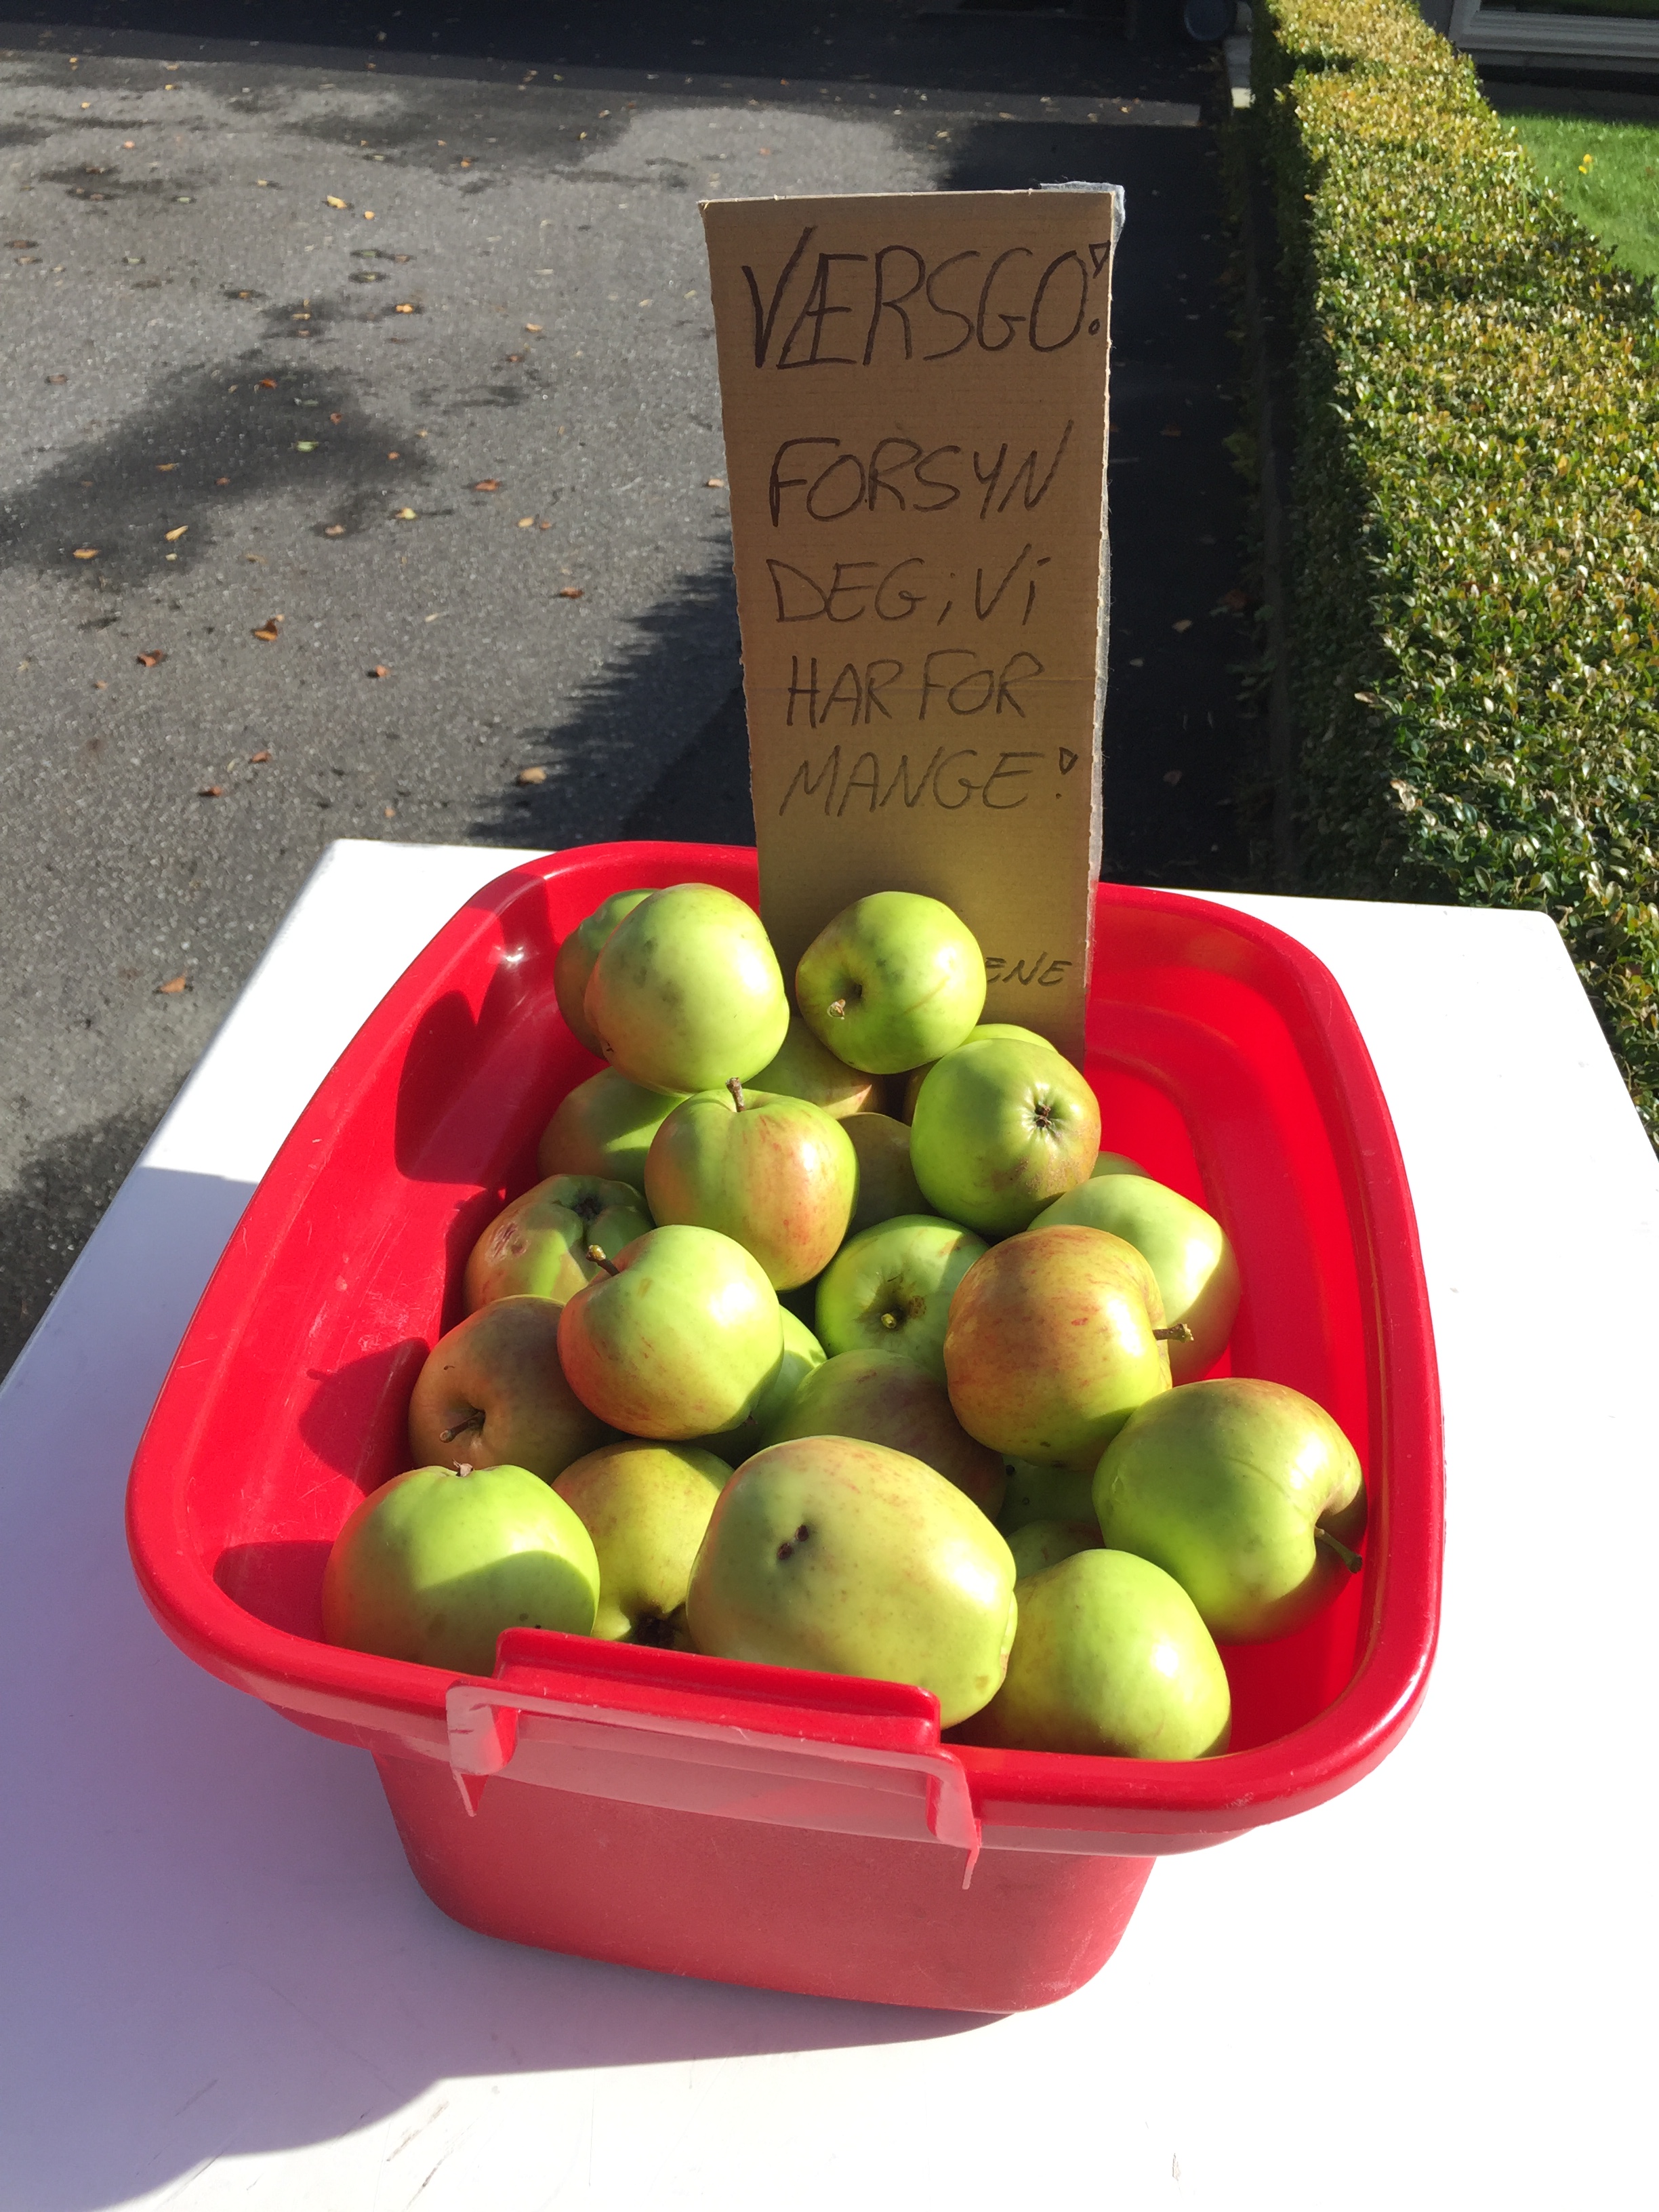 VÆRSGO!
FORSYN
DEG; VI
HAR FOR
MANGE!